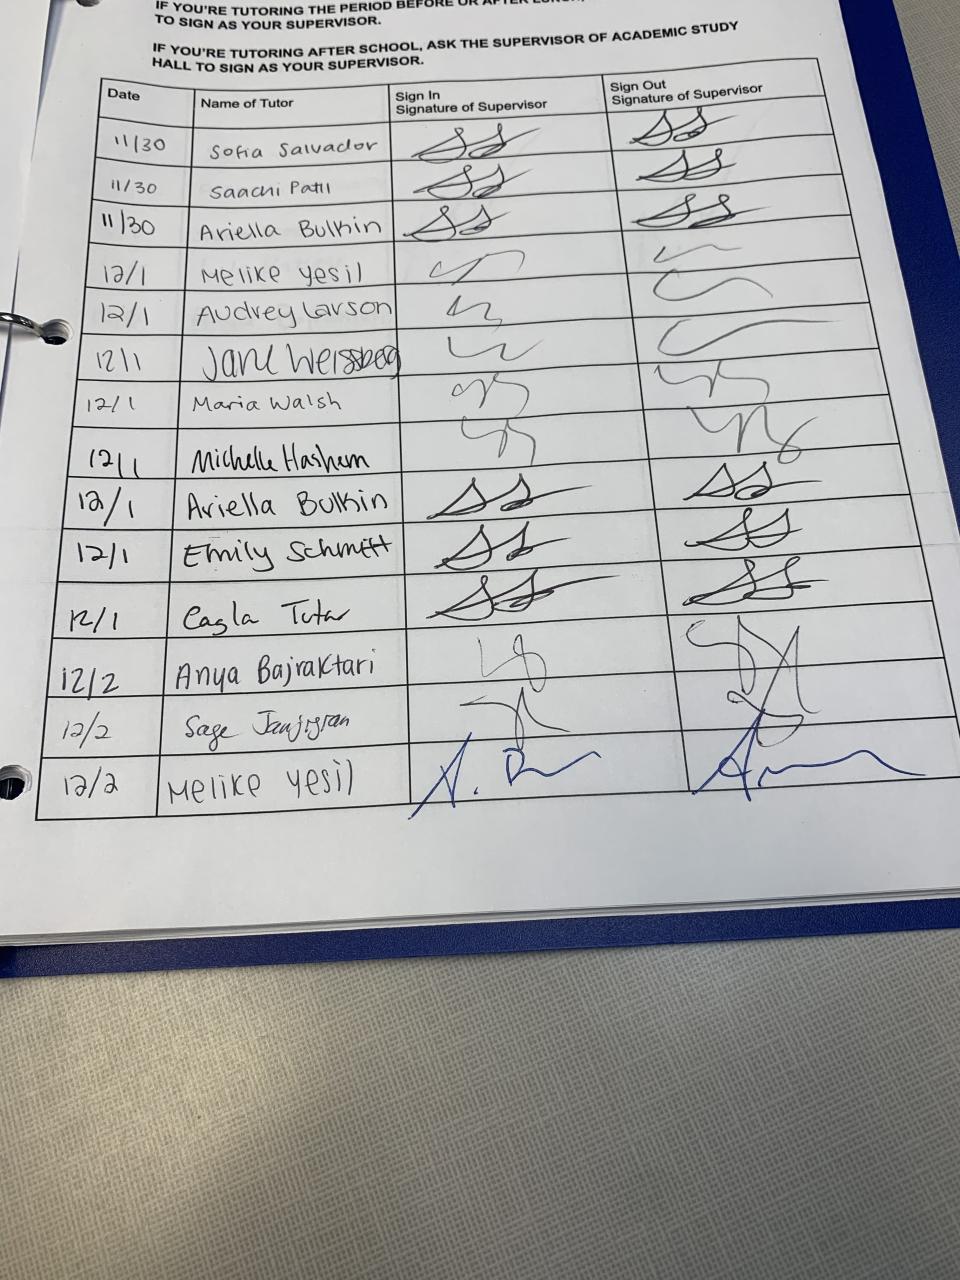 IF YOU'RE TUTORING THE PERIOD BEFORE OR AFTER LUNCH,
TO SIGN AS YOUR SUPERVISOR.
IF YOU'RE TUTORING AFTER SCHOOL, ASK THE SUPERVISOR OF ACADEMIC STUDY
HALL TO SIGN AS YOUR SUPERVISOR.
Date Name of Tutor Sign In Signature of Supervisor Sign Out Signature of Supervisor
11/30 Sofia Salvador SS SS
11/30 Saachi Patil SS SS
11/30 Ariella Bulkin SS SS
12/1 Melike Yesil
12/1 Audrey Larson
12/1 Jane Weissberg
12/1 Maria Walsh
12/1 Michelle Hashem
12/1 Ariella Bulkin SS SS
12/1 Emily Schmett SS SS
12/1 Cagla Tutar SS SS
12/2 Anya Bajraktari
12/2 Sage Janjigian
12/2 Melike Yesil